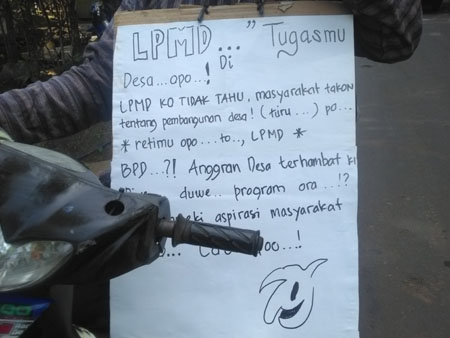 LPMD..." Tugasmu
Di
Desa...opo...!
LPMD KO TIDAK TAHU, masyarakat takon
tentang pembangunan desa! (turu....) po...
* retimu opo...to.., LPMD *
BPD...?! Anggran Desa terhambat ki
duwe... program ora...!?
aspirasi masyarakat